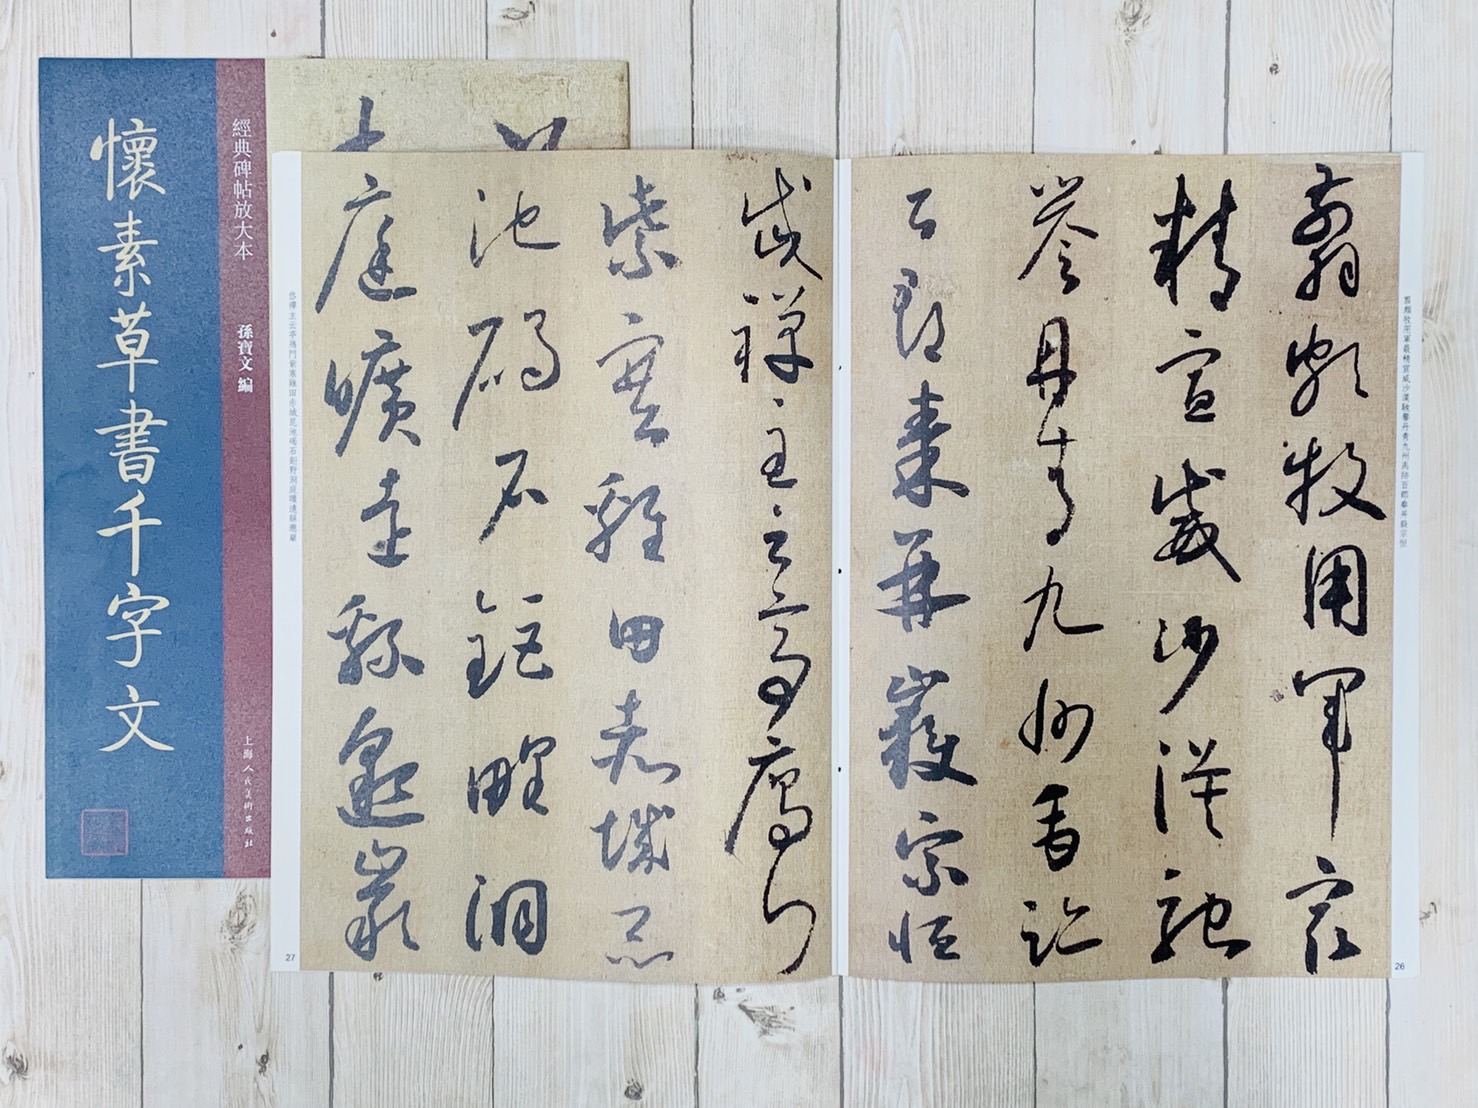 懷素草書千字文
經典碑帖放大本
孫寶文 編
上海人民美術出版社
翦頗牧用軍最
精宣威沙漠馳
譽丹青九州禹跡
百郡秦并嶽宗恒
翦頗牧用軍最精宣威沙漠馳譽丹青九州禹跡百郡秦并嶽宗恒
26
岱禪主云亭鴈門
紫塞雞田赤城昆
池碣石鉅野洞
庭曠遠緜邈巖
岱禪主云亭鴈門紫塞雞田赤城昆池碣石鉅野洞庭曠遠緜邈巖
27